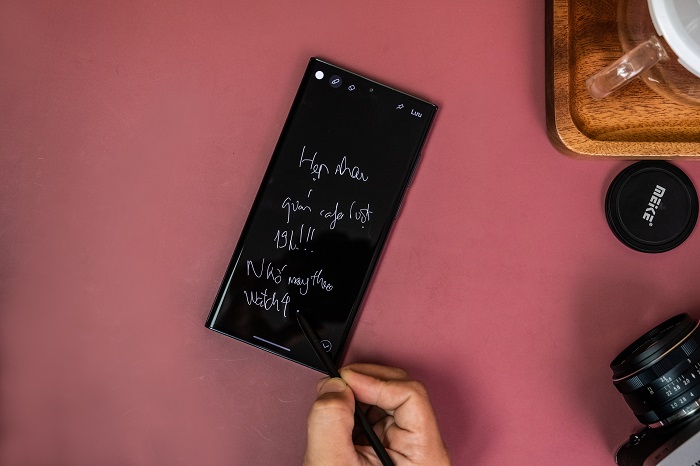 Lưu
Hẹn nhau
quán cafe
19h!!!
Nhớ mang theo
Watch4
MEIKE